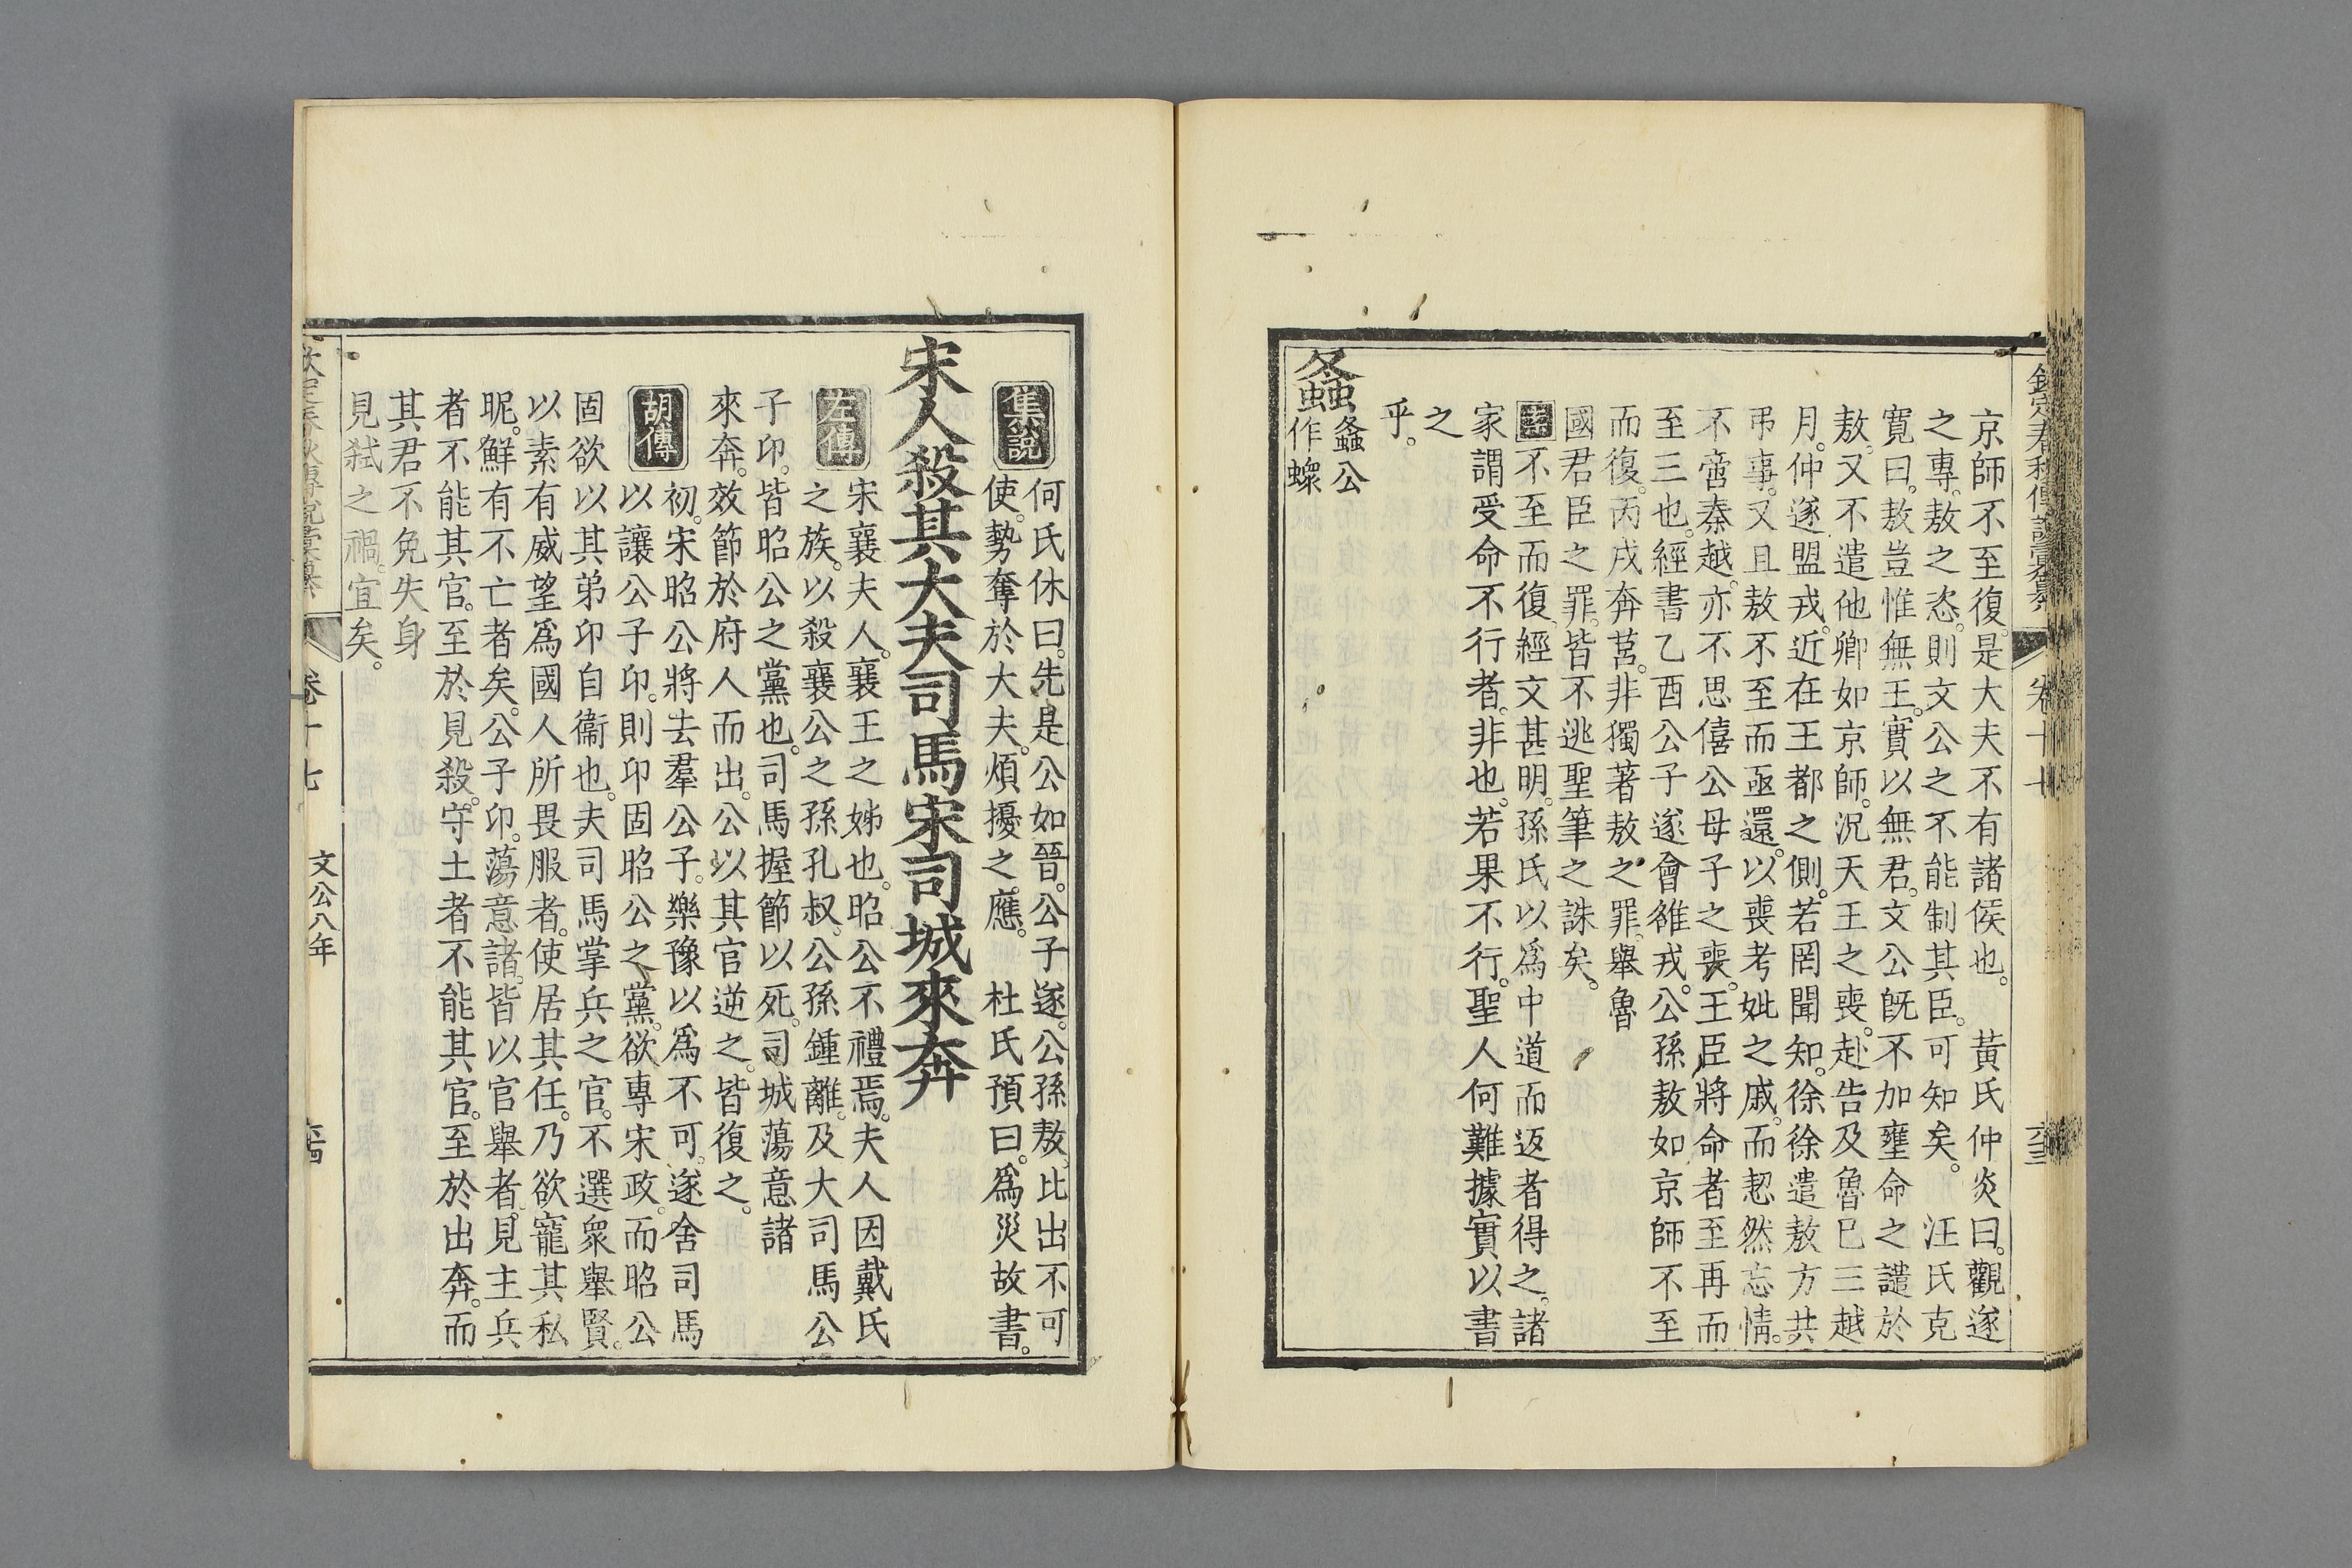 京師不至復是大夫不有諸侯也。黃氏仲炎曰。觀遂
之專。敖之恣。則文公之不能制其臣。可知矣。汪氏克
寬曰。敖豈惟無王。實以無君。文公旣不加壅命之譴於
敖。又不遣他卿如京師。況天王之喪。赴告及魯巳三越
月。仲遂盟戎。近在王都之側。若罔聞知。徐徐遣敖方共
弔事。又且敖不至而亟還。以喪考妣之戚。而恝然忘情。
不啻秦越。亦不思僖公母子之喪。王臣將命者至再而
至三也。經書乙酉公子遂會雒戎。公孫敖如京師不至
而復。丙戌奔莒。非獨著敖之罪。舉魯
國君臣之罪。皆不逃聖筆之誅矣。
案不至而復。經文甚明。孫氏以爲中道而返者得之。諸
家謂受命不行者。非也。若果不行。聖人何難據實以書
之
乎。
螽螽公
作蠑
卷十七
集說何氏休曰。先是公如晉。公子遂。公孫敖。比出不可
使。勢奪於大夫。煩擾之應。杜氏預曰。爲災故書。
宋人殺其大夫司馬宋司城來奔
左傳宋襄夫人。襄王之姊也。昭公不禮焉。夫人因戴氏
之族。以殺襄公之孫孔叔。公孫鍾離。及大司馬公
子卬。皆昭公之黨也。司馬握節以死。司城蕩意諸
來奔。效節於府人而出。公以其官逆之。皆復之。
胡傳初。宋昭公將去羣公子。樂豫以爲不可。遂舍司馬
以讓公子卬。則卬固昭公之黨。欲專宋政。而昭公
固欲以其弟卬自衞也。夫司馬掌兵之官。不選衆舉賢。
以素有威望爲國人所畏服者。使居其任。乃欲寵其私
昵。鮮有不亡者矣。公子卬。蕩意諸。皆以官舉者。見主兵
者不能其官。至於見殺。守土者不能其官。至於出奔。而
其君不免失身
見弒之禍。宜矣。
卷十七 文公八年